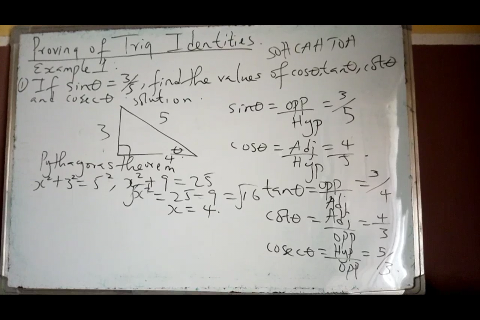 Proving of Trig Identities.
SOHCAHTOA
Example 1.
① If sinθ = 3/5, find the values of cosθ, tanθ, cotθ
and cosecθ solution.
3
5
4
θ
Pythagoras theorem
x² + 3² = 5², x² + 9 = 25
√x² = 25 - 9 = √16
x = 4.
sinθ = opp/Hyp = 3/5
cosθ = Adj/Hyp = 4/5.
tanθ = opp/Adj = 3/4
cotθ = Adj/opp = 4/3
cosecθ = Hyp/opp = 5/3.